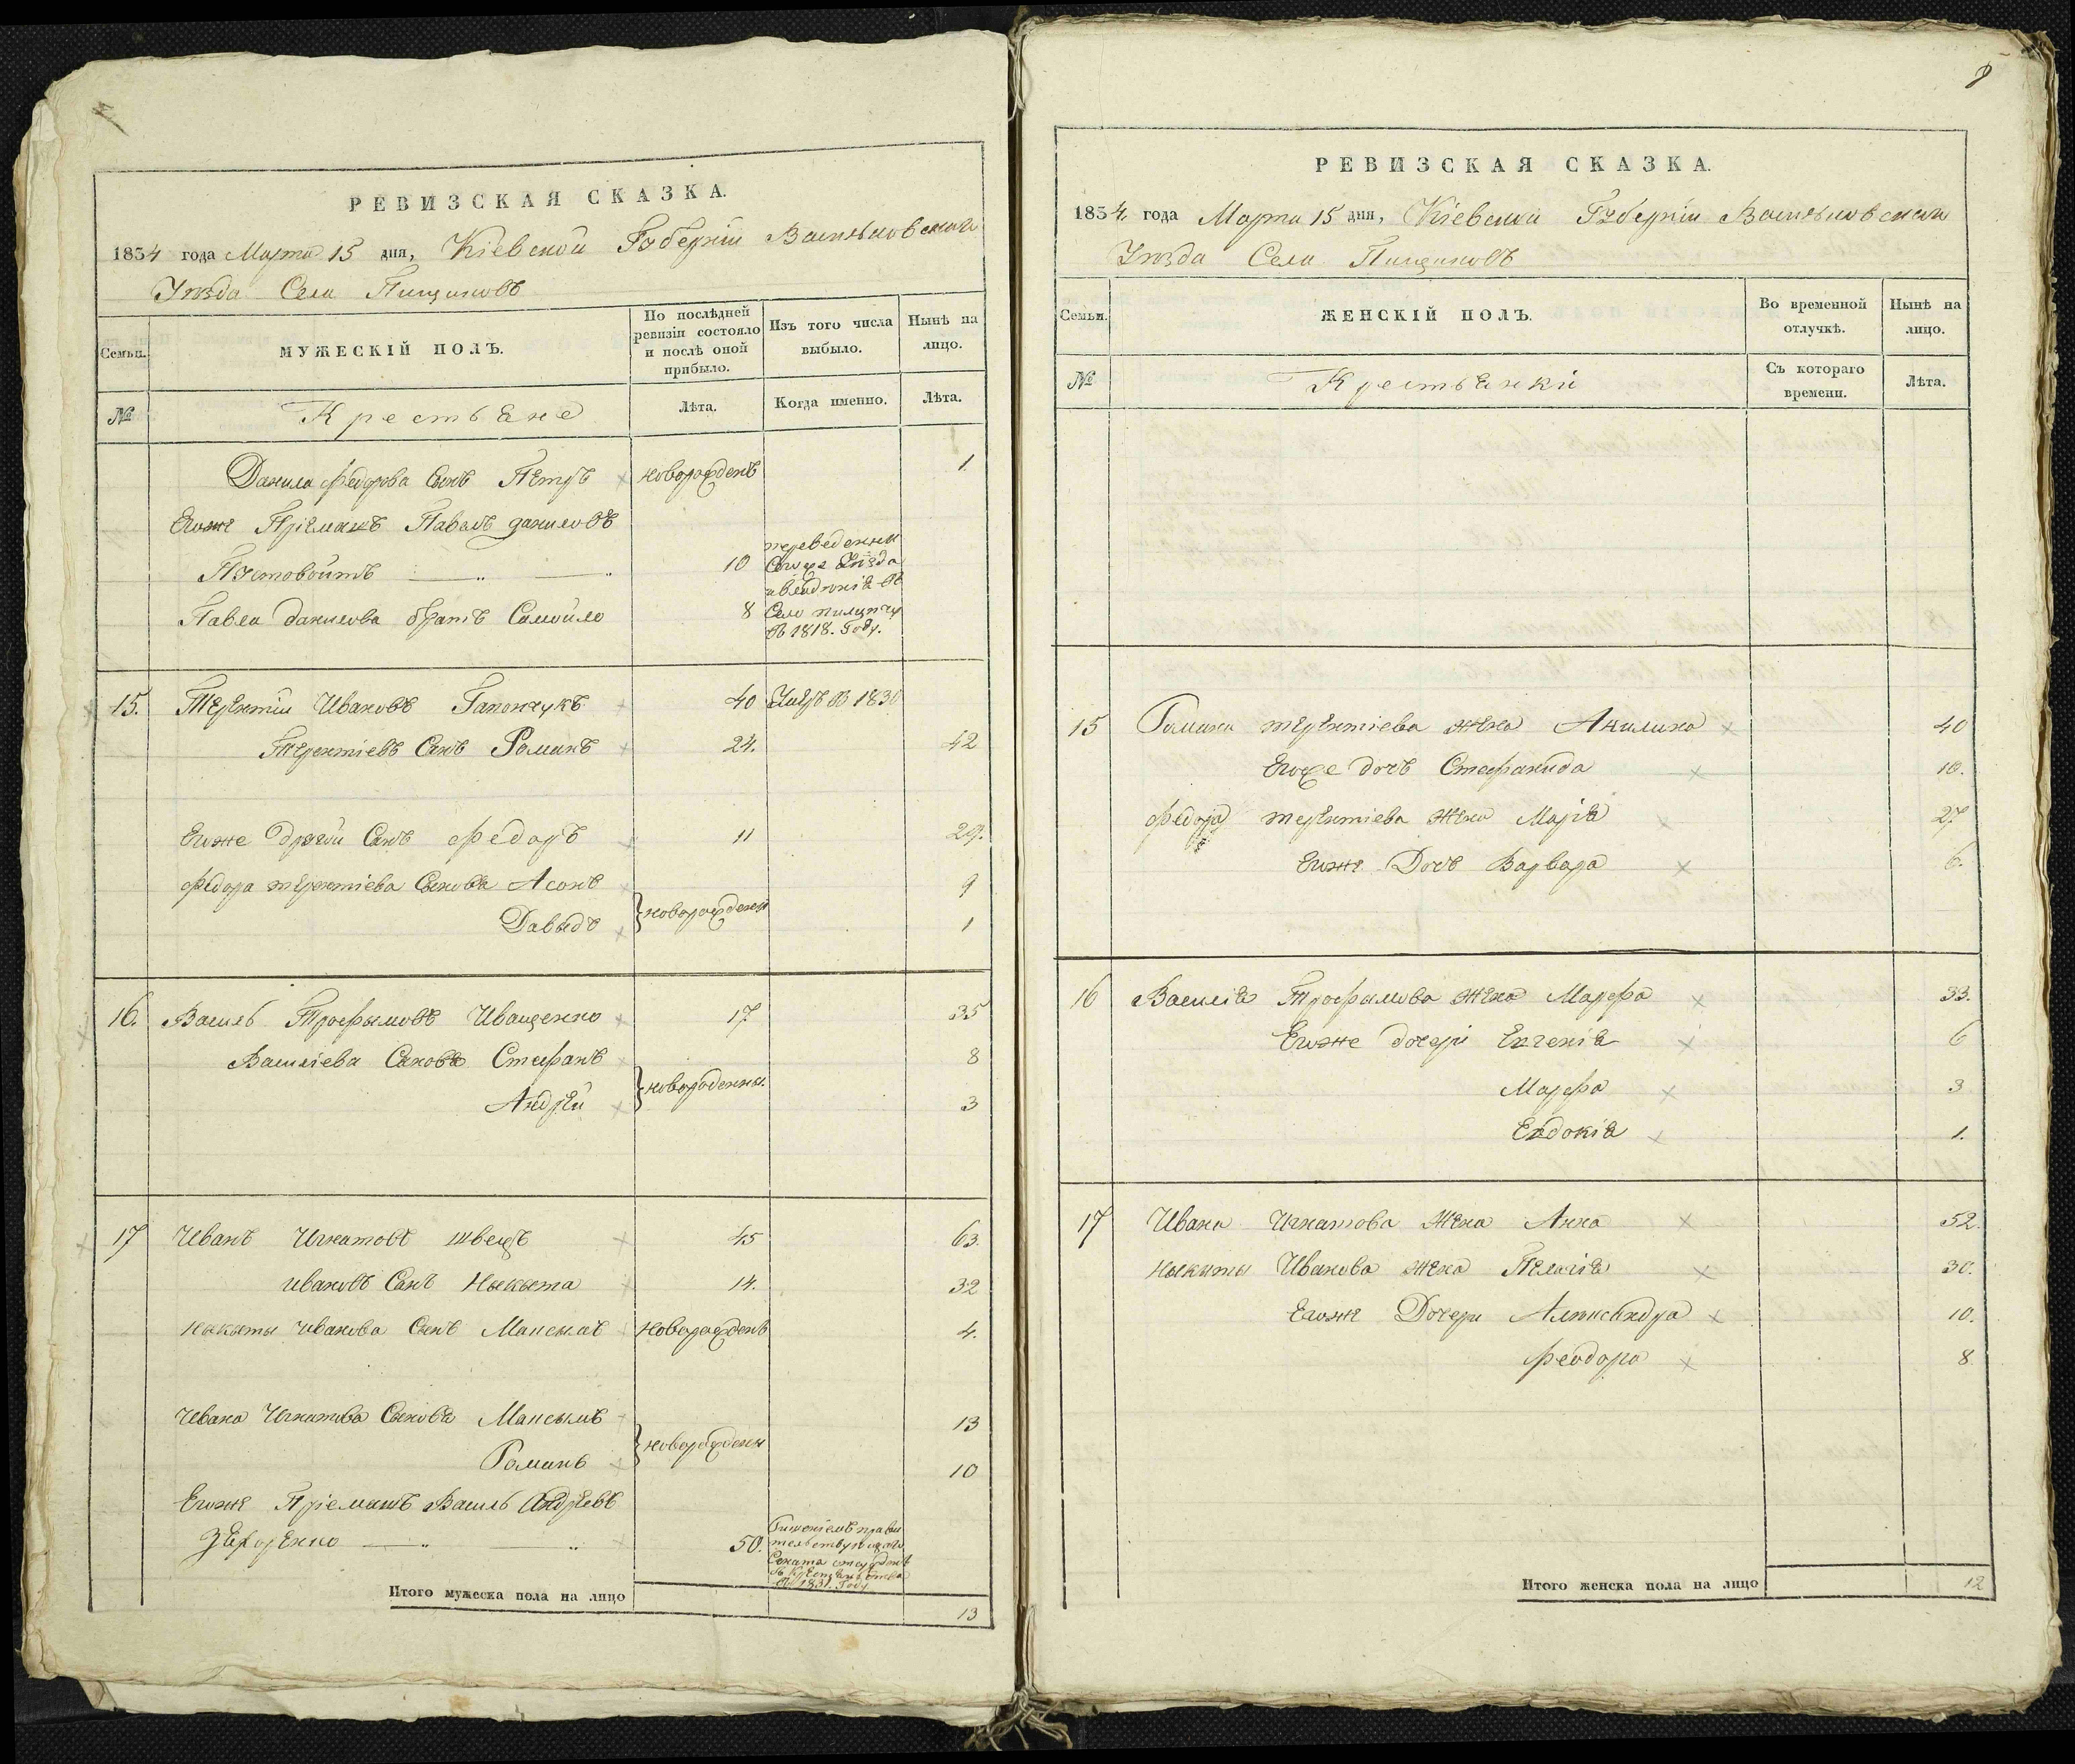 РЕВИЗСКАЯ СКАЗКА.
1834 года Марта 15 дня, Кіевской Губерніи Васильковскаго
Уѣзда Села Пищиковъ
Семьи.
МУЖЕСКІЙ ПОЛЪ.
По послѣдней ревизіи состояло и послѣ оной прибыло.
Изъ того числа выбыло.
Нынѣ на лицо.
№
Крестьяне
Лѣта.
Когда именно.
Лѣта.
Данила Федорова Сынъ Петръ новорожденъ 1.
Егоже Пріемышъ Павелъ даниловъ
Пустовойтъ 10
Павла данилова братъ Самойло 8
переведенны
Села
в 1818. Году.
15. Терентій Ивановъ Гапончукъ 40 Умеръ в 1830
Терентіевъ Сынъ Романъ 24. 42
Егоже другой Сынъ Федоръ 11 29.
Федора терентіева Сыновья Асонъ 9
Давыдъ новорожденны 1
16. Василь Трофымовъ Иващенко 17 35
Василіева Сыновья Стефанъ 8
Андрей новорожденны. 3
17 Иванъ Игнатовъ швецъ 45 63.
ивановъ Сынъ Ныкыта 14. 32
ныкыты иванова Сынъ Максымъ новорожденъ 4.
Ивана Игнатова Сыновья Максымъ 13
Романъ новорожденны 10
Егоже Пріемышъ Василь Андреевъ
50.
Сената
в 1831. Году
Итого мужеска пола на лицо 13
8
РЕВИЗСКАЯ СКАЗКА.
1834 года Марта 15 дня, Кіевской Губерніи Васильковскаго
Уѣзда Села Пищиковъ
Семьи.
ЖЕНСКІЙ ПОЛЪ.
Во временной отлучкѣ.
Нынѣ на лицо.
№
Крестьянки
Съ котораго времени.
Лѣта.
15 Романа терентіева жена Акилина 40
Егоже дочь Стефанида 10.
Федора терентіева жена Марія 27
Егоже Дочь Варвара 6.
16 Василія Трофымова жена Марфа 33.
Егоже дочери Евгенія 6
Марфа 3
Евдокія 1.
17 Ивана Игнатова жена Анна 52
ныкиты Иванова жена Пелагія 30.
Егоже Дочери Александра 10.
Феодора 8
Итого женска пола на лицо 12